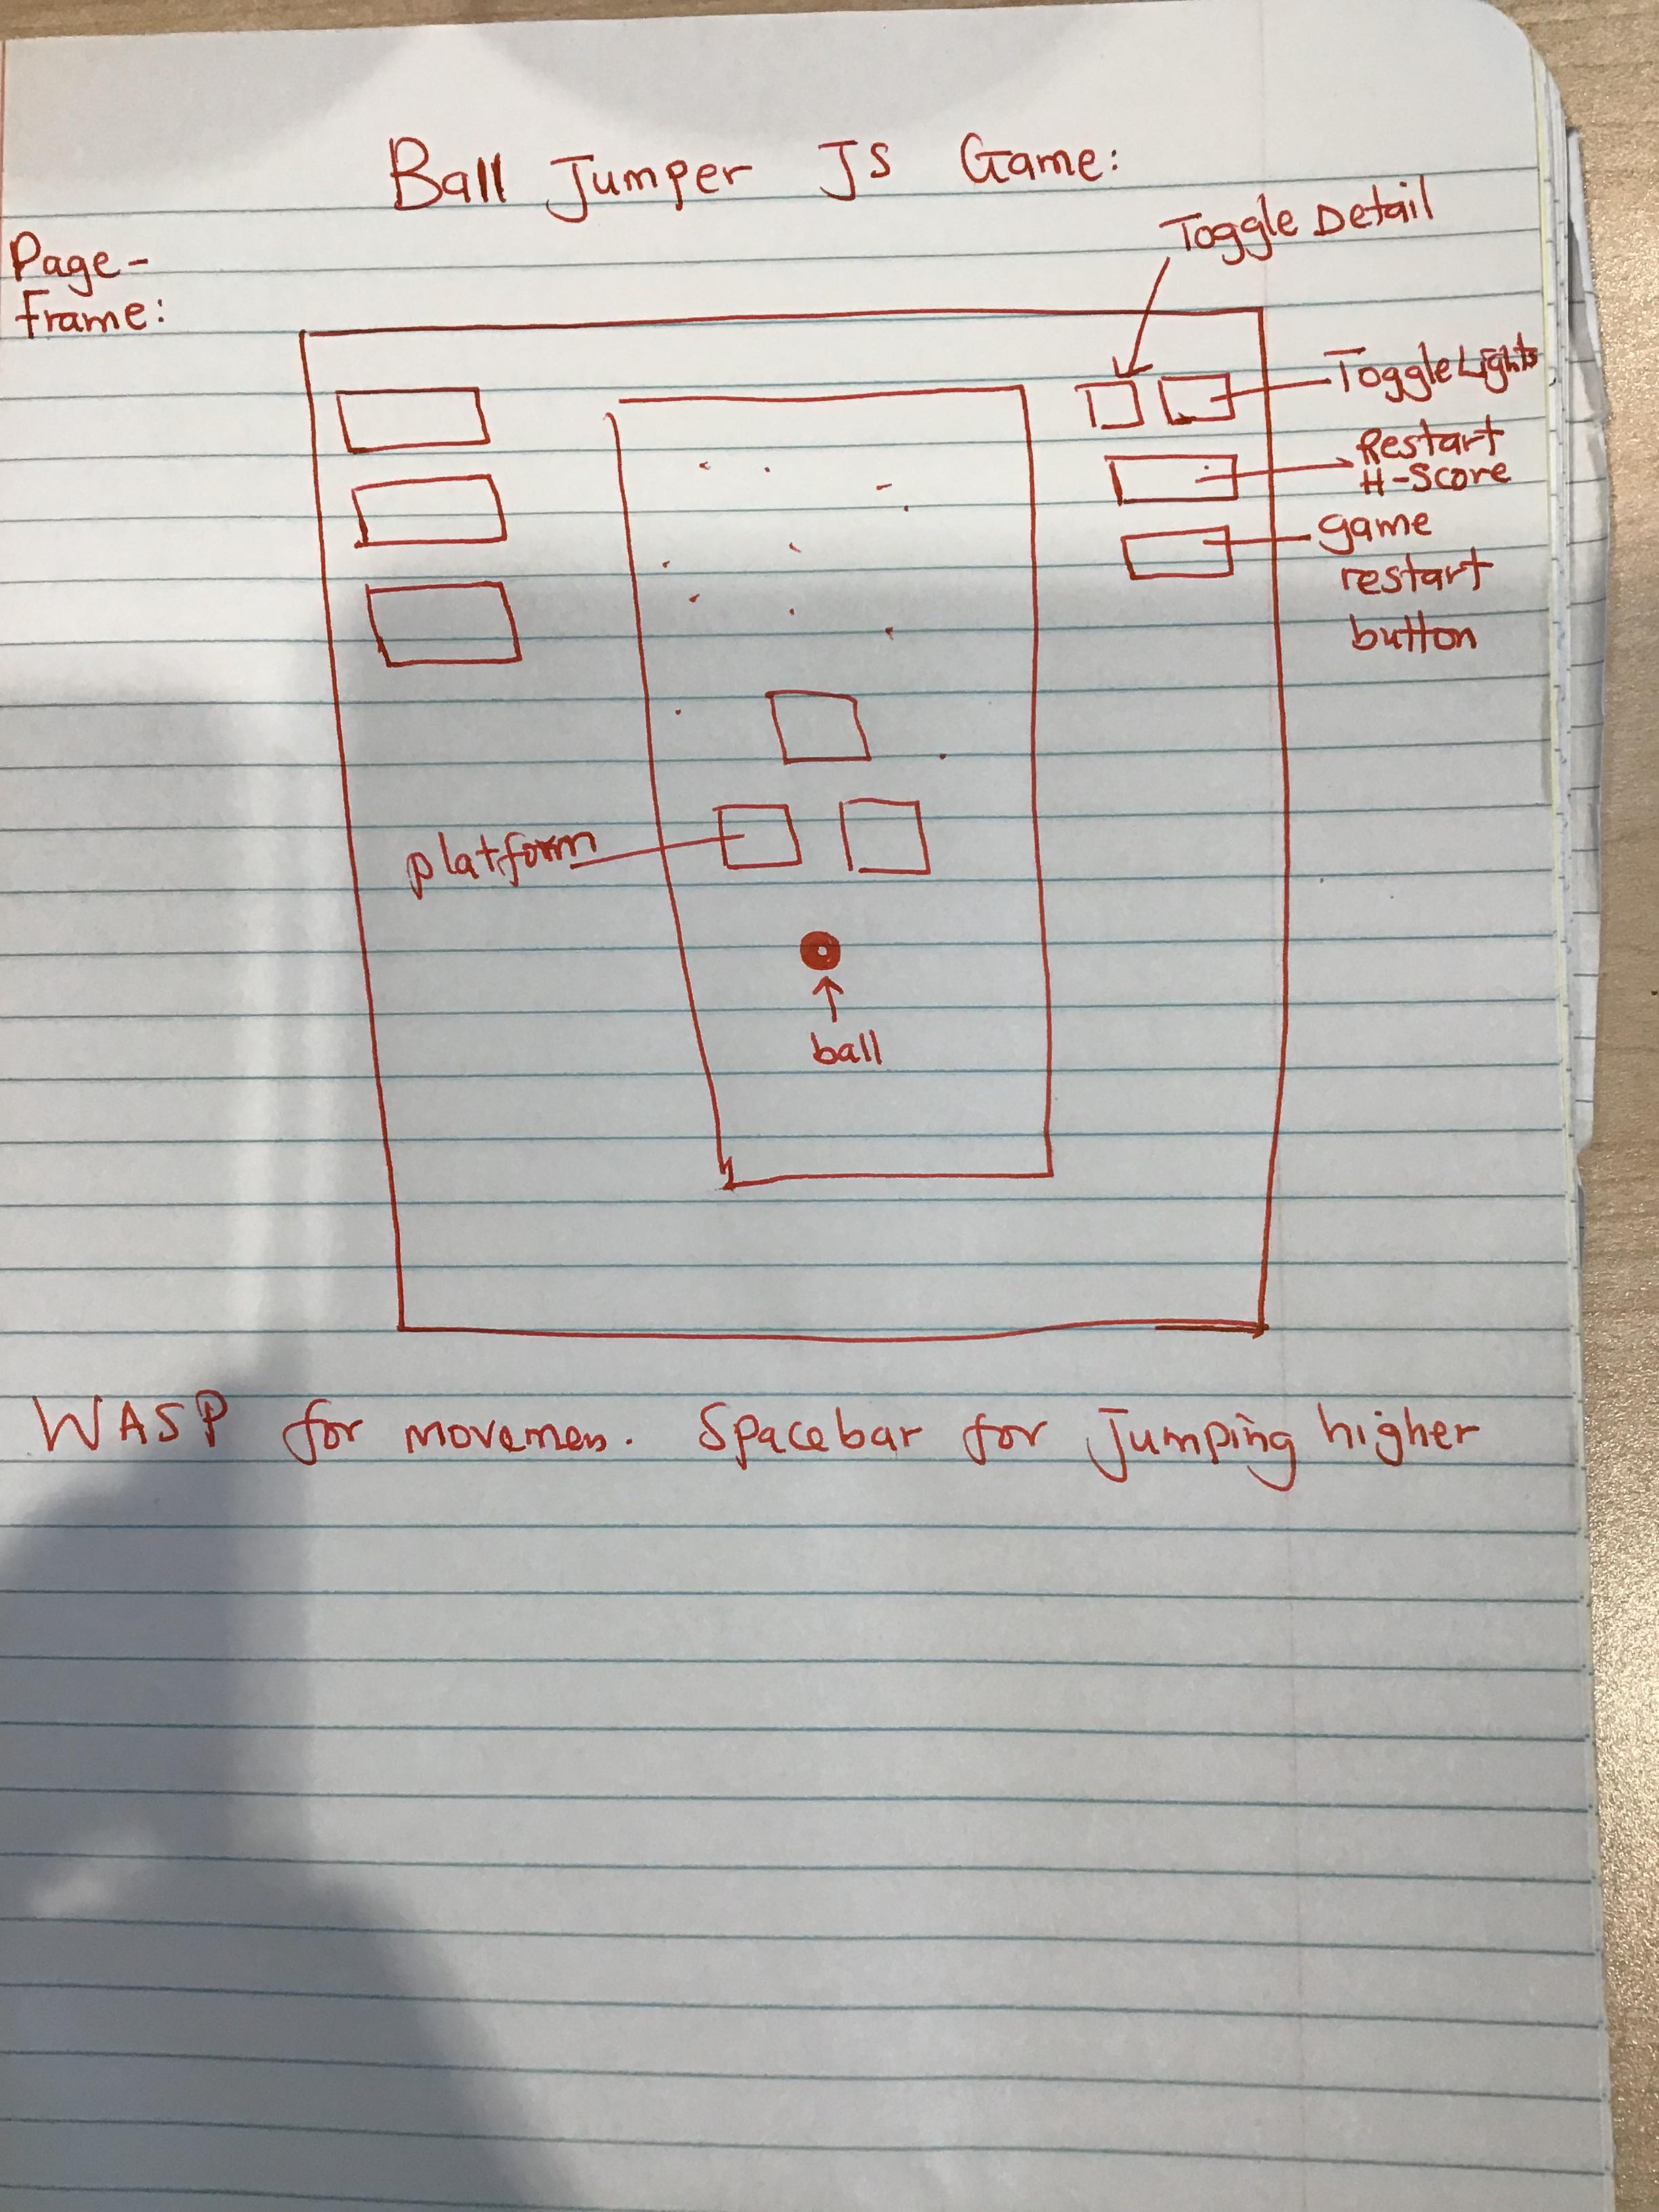 Ball Jumper JS Game:
Toggle Detail
Page-
frame:
Toggle Lights
Restart
H-Score
game
restart
button
platform
ball
WASP for movemen. Spacebar for Jumping higher